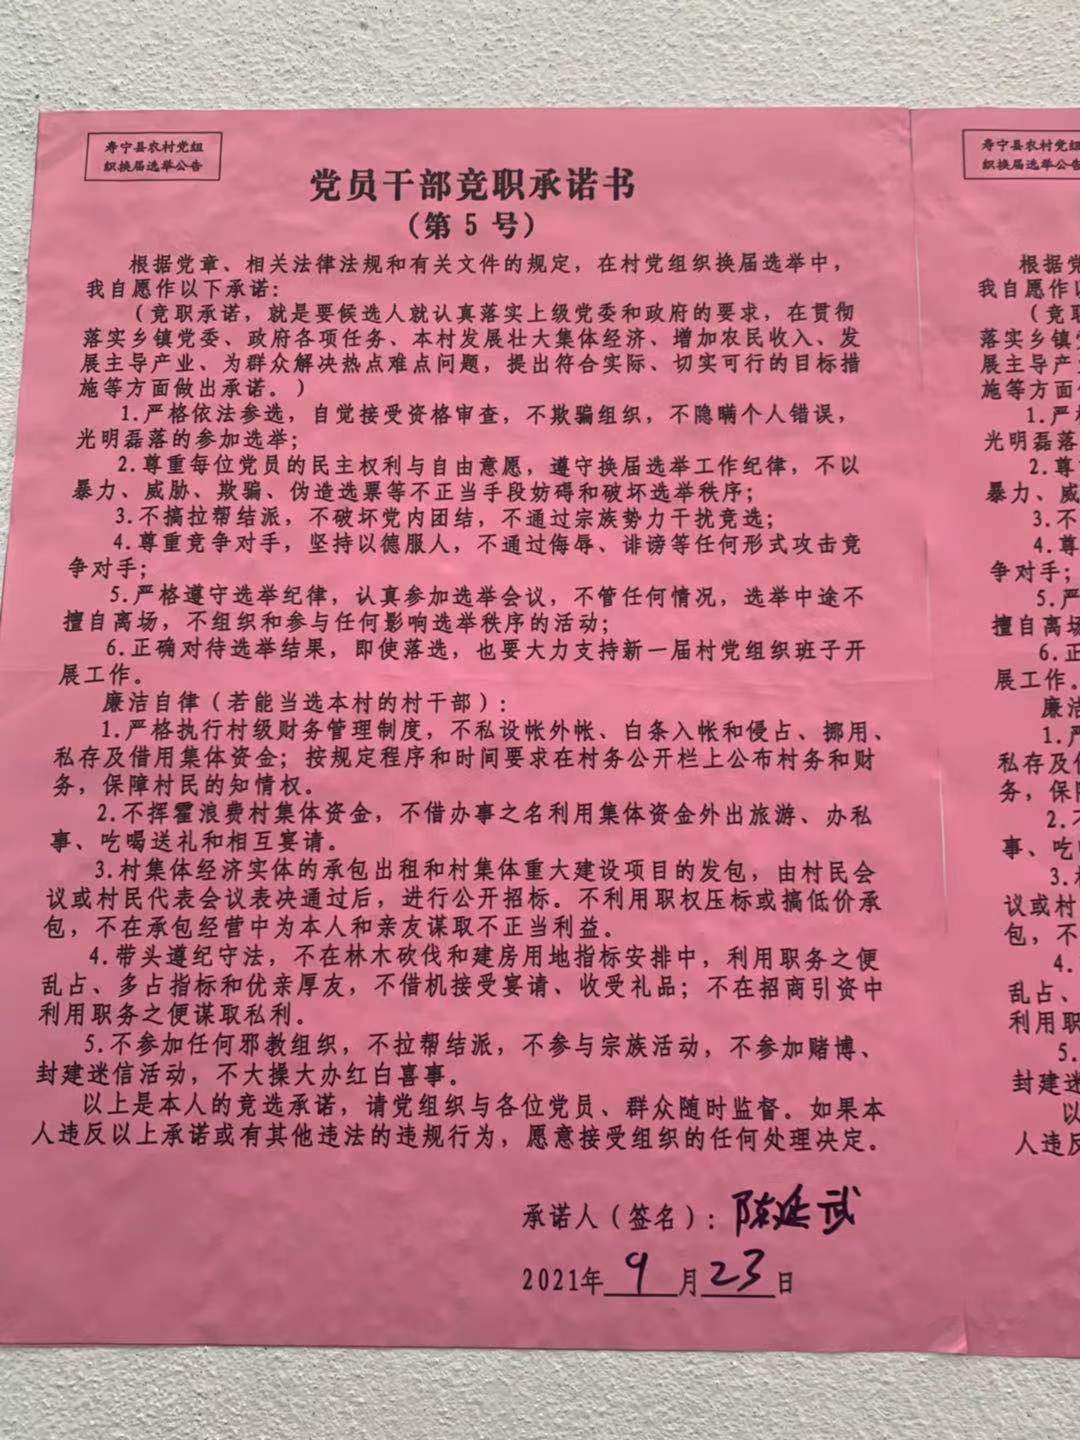 寿宁县农村党组
织换届选举公告
党员干部竞职承诺书
(第 5 号)
根据党章、相关法律法规和有关文件的规定，在村党组织换届选举中，
我自愿作以下承诺：
(竞职承诺，就是要候选人就认真落实上级党委和政府的要求，在贯彻
落实乡镇党委、政府各项任务、本村发展壮大集体经济、增加农民收入、发
展主导产业、为群众解决热点难点问题，提出符合实际、切实可行的目标措
施等方面做出承诺。)
1.严格依法参选，自觉接受资格审查，不欺骗组织，不隐瞒个人错误，
光明磊落的参加选举；
2.尊重每位党员的民主权利与自由意愿，遵守换届选举工作纪律，不以
暴力、威胁、欺骗、伪造选票等不正当手段妨碍和破坏选举秩序；
3.不搞拉帮结派，不破坏党内团结，不通过宗族势力干扰竞选；
4.尊重竞争对手，坚持以德服人，不通过侮辱、诽谤等任何形式攻击竞
争对手；
5.严格遵守选举纪律，认真参加选举会议，不管任何情况，选举中途不
擅自离场，不组织和参与任何影响选举秩序的活动；
6.正确对待选举结果，即使落选，也要大力支持新一届村党组织班子开
展工作。
廉洁自律（若能当选本村的村干部）：
1.严格执行村级财务管理制度，不私设帐外帐、白条入帐和侵占、挪用、
私存及借用集体资金；按规定程序和时间要求在村务公开栏上公布村务和财
务，保障村民的知情权。
2.不挥霍浪费村集体资金，不借办事之名利用集体资金外出旅游、办私
事、吃喝送礼和相互宴请。
3.村集体经济实体的承包出租和村集体重大建设项目的发包，由村民会
议或村民代表会议表决通过后，进行公开招标。不利用职权压标或搞低价承
包，不在承包经营中为本人和亲友谋取不正当利益。
4.带头遵纪守法，不在林木砍伐和建房用地指标安排中，利用职务之便
乱占、多占指标和优亲厚友，不借机接受宴请、收受礼品；不在招商引资中
利用职务之便谋取私利。
5.不参加任何邪教组织，不拉帮结派，不参与宗族活动，不参加赌博、
封建迷信活动，不大操大办红白喜事。
以上是本人的竞选承诺，请党组织与各位党员、群众随时监督。如果本
人违反以上承诺或有其他违法的违规行为，愿意接受组织的任何处理决定。
承诺人（签名）：陈延武
2021年 9 月 23 日
寿宁县农村党组
织换届选举公告
根据党
我自愿作以
(竞职
落实乡镇党
展主导产业
施等方面
1.严
光明磊落
2.尊
暴力、威
3.不
4.尊
争对手；
5.严
擅自离场
6.正
展工作。
廉洁
1.严
私存及借
务，保障
2.不
事、吃喝
3.村
议或村
包，不
4.
乱占、
利用职
5.
封建迷
以
人违反